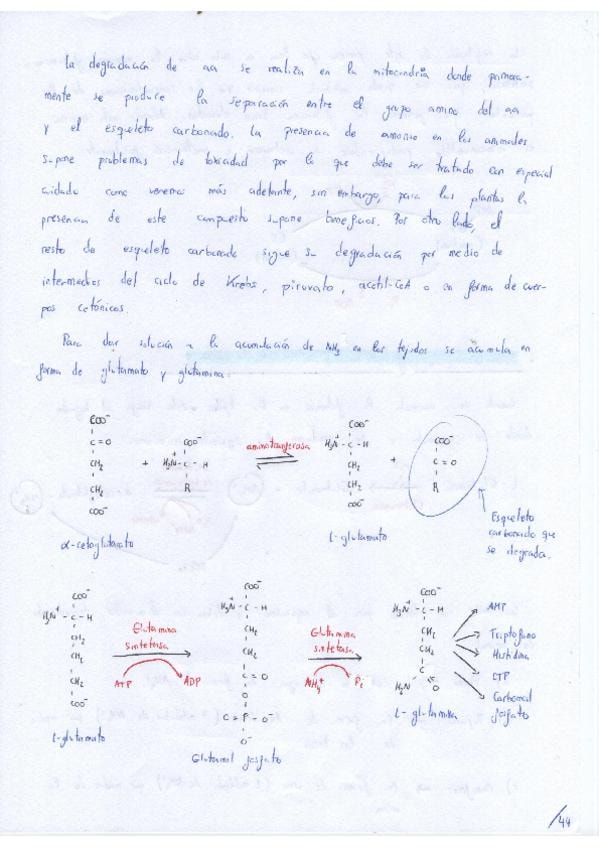 La degradación de aa se realiza en la mitocondria donde primera-
mente se produce la separación entre el grupo amino del aa
y el esqueleto carbonado. La presencia de amonio en los animales
supone problemas de toxicidad por lo que debe ser tratado con especial
cuidado como veremos más adelante, sin embargo, para las plantas la
presencia de este compuesto supone beneficios. Por otro lado, el
resto de esqueleto carbonado sigue su degradación por medio de
intermedios del ciclo de Krebs, piruvato, acetil-CoA o en forma de cuer-
pos cetónicos.
Para dar solución a la acumulación de NH3 en los tejidos se acumula en
forma de glutamato y glutamina.
COO⁻
C = O
CH2
CH2
COO⁻
α-cetoglutarato
+
COO⁻
H3N⁺ - C - H
R
aminotransferasa
COO⁻
H3N⁺ - C - H
CH2
CH2
COO⁻
L-glutamato
+
COO⁻
C = O
R
Esqueleto
carbonado que
se degrada.
COO⁻
H3N⁺ - C - H
CH2
CH2
CH2
COO⁻
L-glutamato
Glutamina
sintetasa
ATP
ADP
COO⁻
H3N⁺ - C - H
CH2
CH2
C = O
O
O = P - O⁻
O⁻
Glutamil fosfato
Glutamina
sintetasa
NH4⁺
Pi
COO⁻
H3N⁺ - C - H
CH2
CH2
C
H2N
O
L-glutamina
AMP
Triptófano
Histidina
CTP
Carbamoil
fosfato
/44